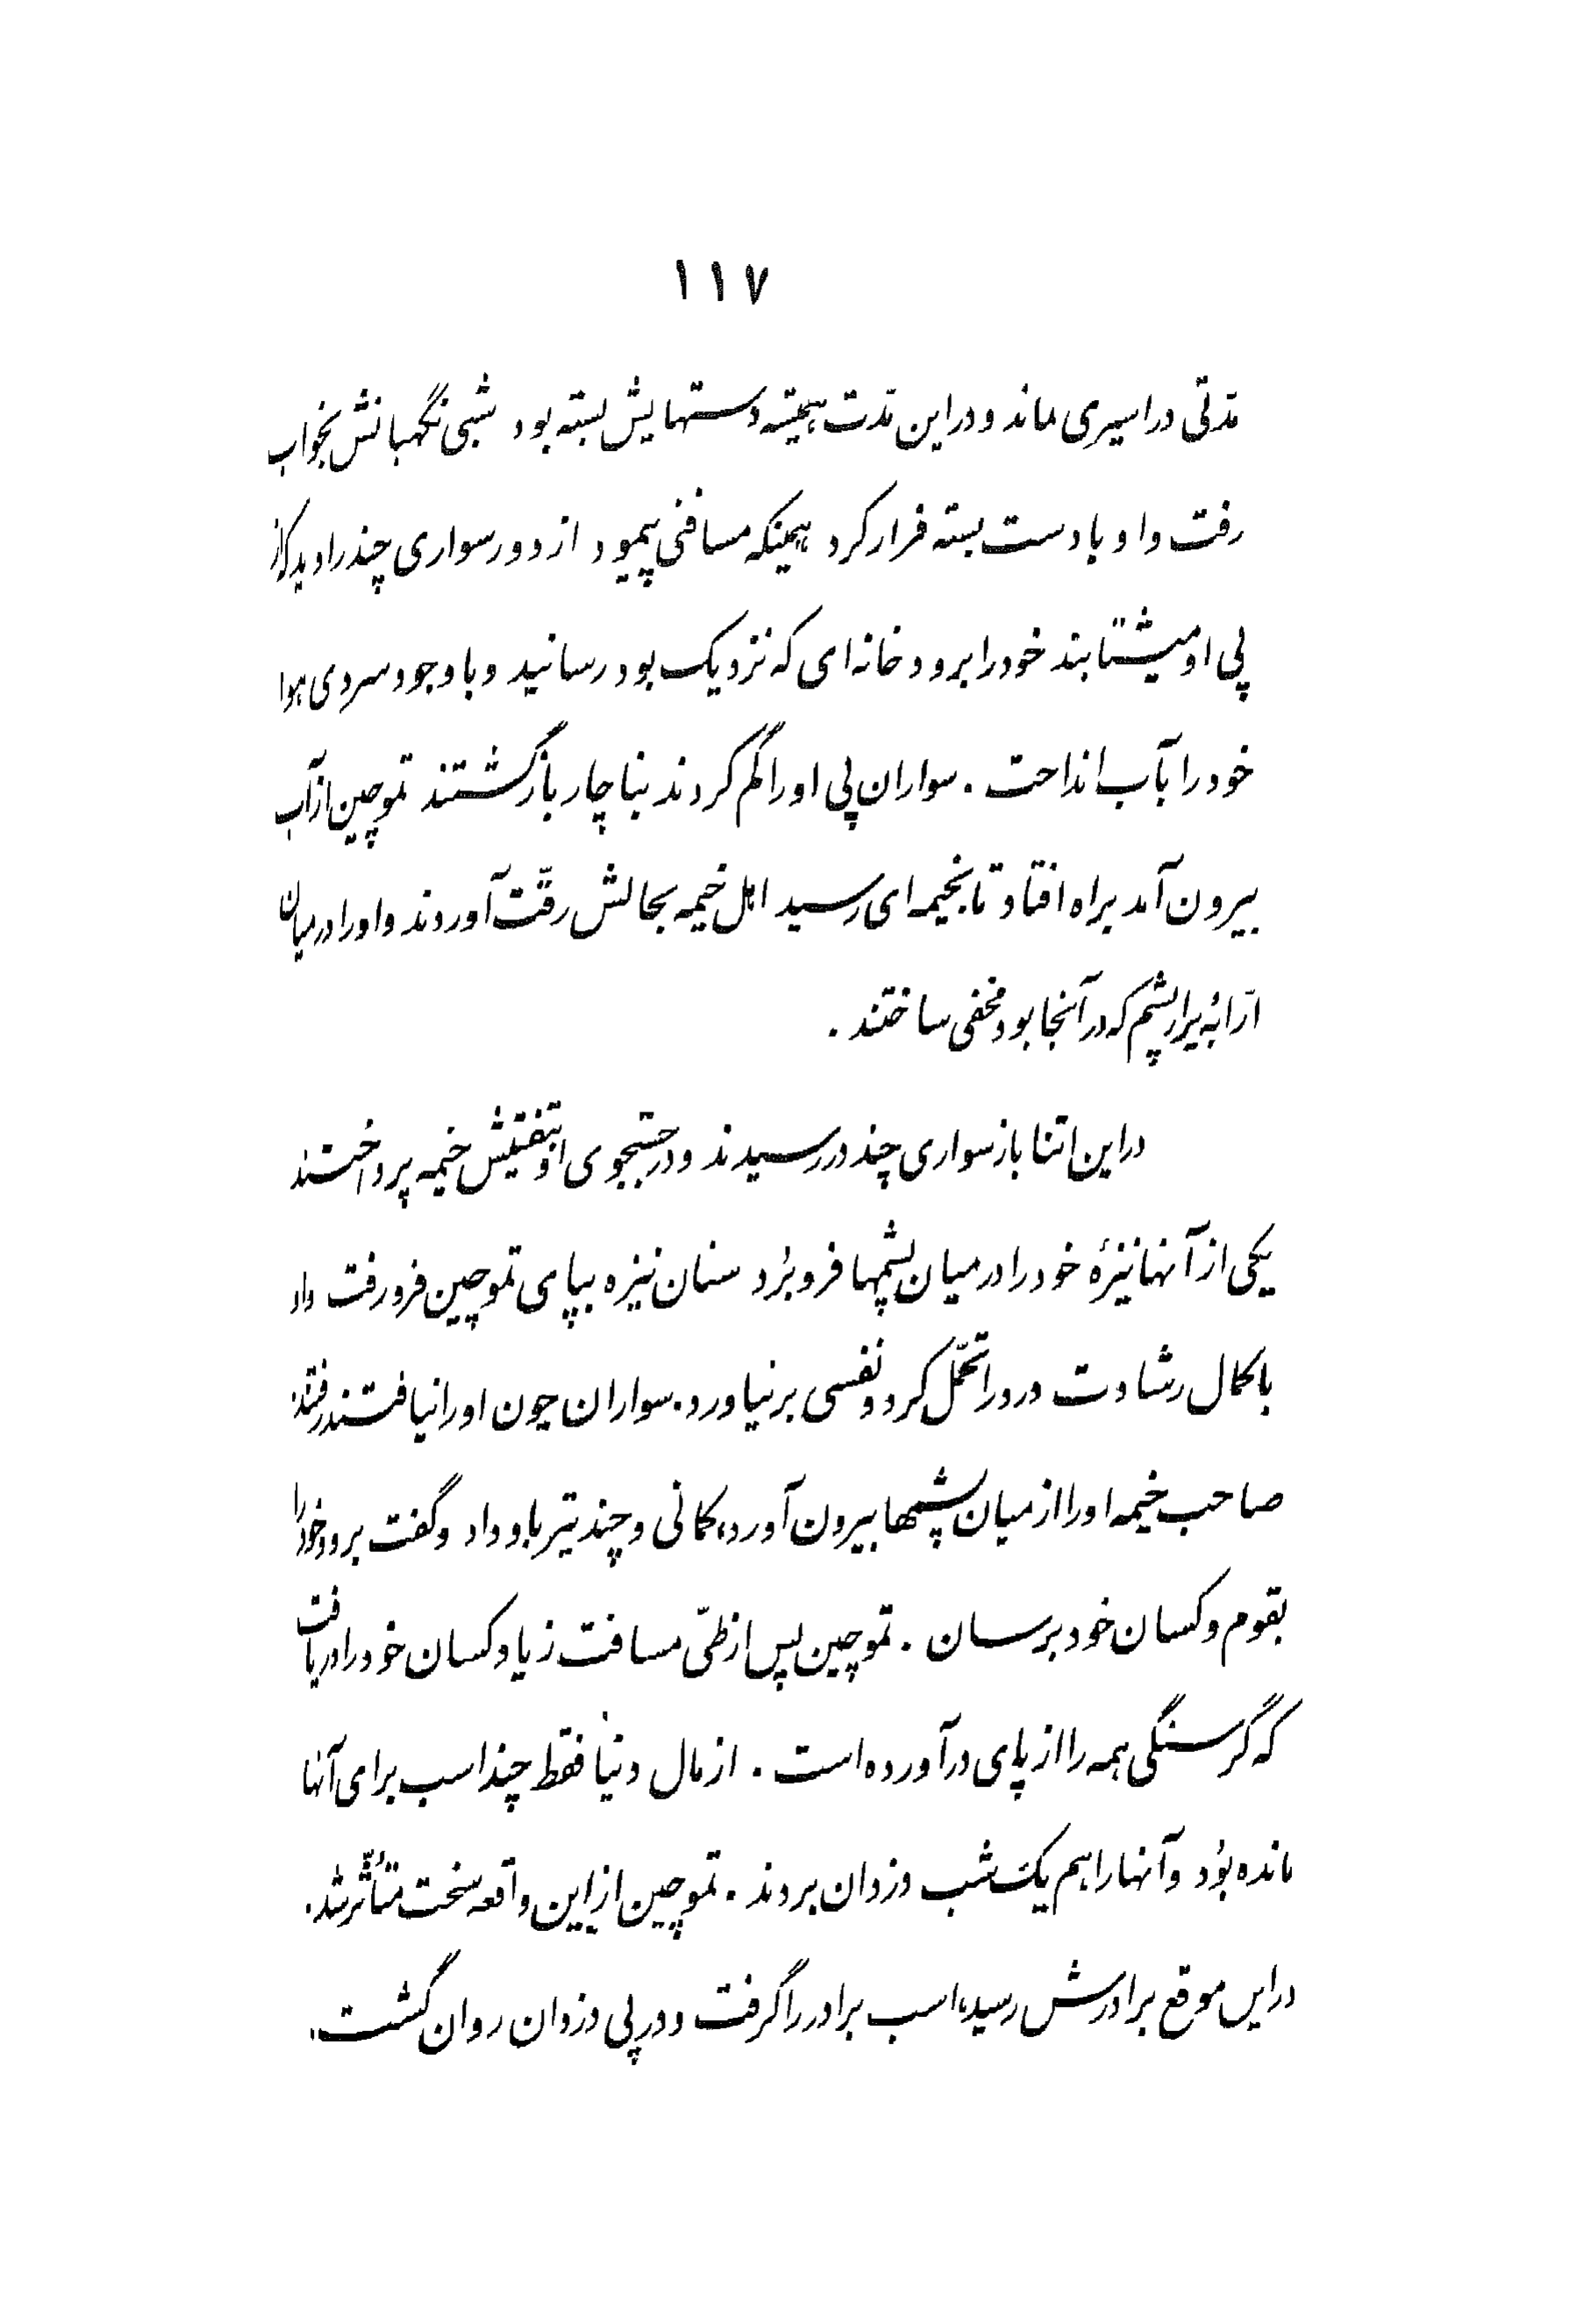 ۱۱۷
مدّتی در اسیری ماند و در این مدّت همیشه دستهایش بسته بود شبی نگهبانش بخواب
رفت و او با دست بسته فرار کرد همینکه مسافتی پیمود از دور سواری چند را دید که از
پی او میشتابند خود را برودخانه‌ای که نزدیک بود رسانید و با وجود سردی هوا
خود را بآب انداخت . سواران پی او را گم کردند بناچار بازگشتند تموچین از آب
بیرون آمد براه افتاد تا بخیمه‌ای رسید اهل خیمه بحالش رقّت آوردند و او را در میان
ارّابهٔ پر از پشم که در آنجا بود مخفی ساختند .
در این اثنا باز سواری چند در رسیدند و در جستجوی او بتفتیش خیمه پرداختند
یکی از آنها نیزهٔ خود را در میان پشمها فرو بُرد سنان نیزه بپای تموچین فرو رفت و او
با کمال رشادت درد را تحمّل کرد و نفسی بر نیاورد . سواران چون او را نیافتند رفتند .
صاحب خیمه او را از میان پشمها بیرون آورد، کمانی و چند تیر باو داد و گفت برو و خود را
بقوم و کسان خود برسان . تموچین پس از طیّ مسافت زیاد کسان خود را دریافت
که گرسنگی همه را از پای در آورده است . از مال دنیا فقط چند اسب برای آنها
مانده بُود و آنها را هم یک شب دزدان بردند . تموچین از این واقعه سخت متأثّر شد .
در این موقع برادرش رسید، اسب برادر را گرفت و در پی دزدان روان گشت .